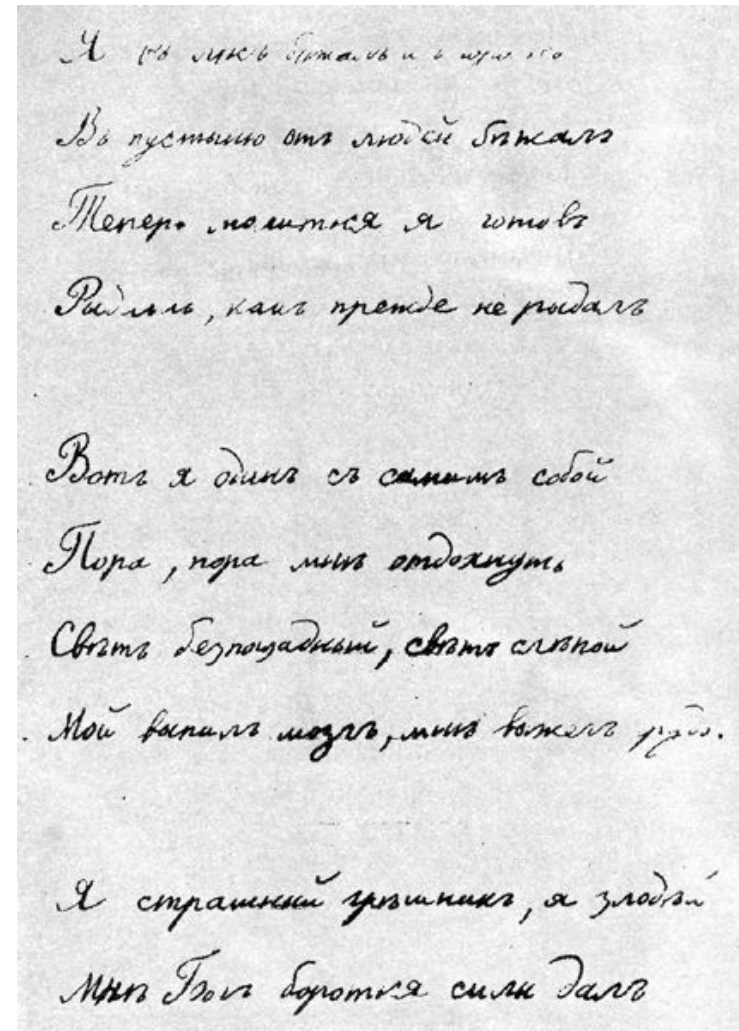 Я въ лѣсъ бѣжалъ
Въ пустыню отъ людей бѣжалъ
Теперь молиться я готовъ
Рыдать, какъ прежде не рыдалъ
Вотъ я одинъ съ самимъ собой
Пора, пора мнѣ отдохнуть
Свѣтъ безпощадный, свѣтъ слѣпой
Мой выпилъ мозгъ, мнѣ выжегъ грудь.
Я страшный грѣшникъ, я злодѣй
Мнѣ Богъ бороться силы далъ